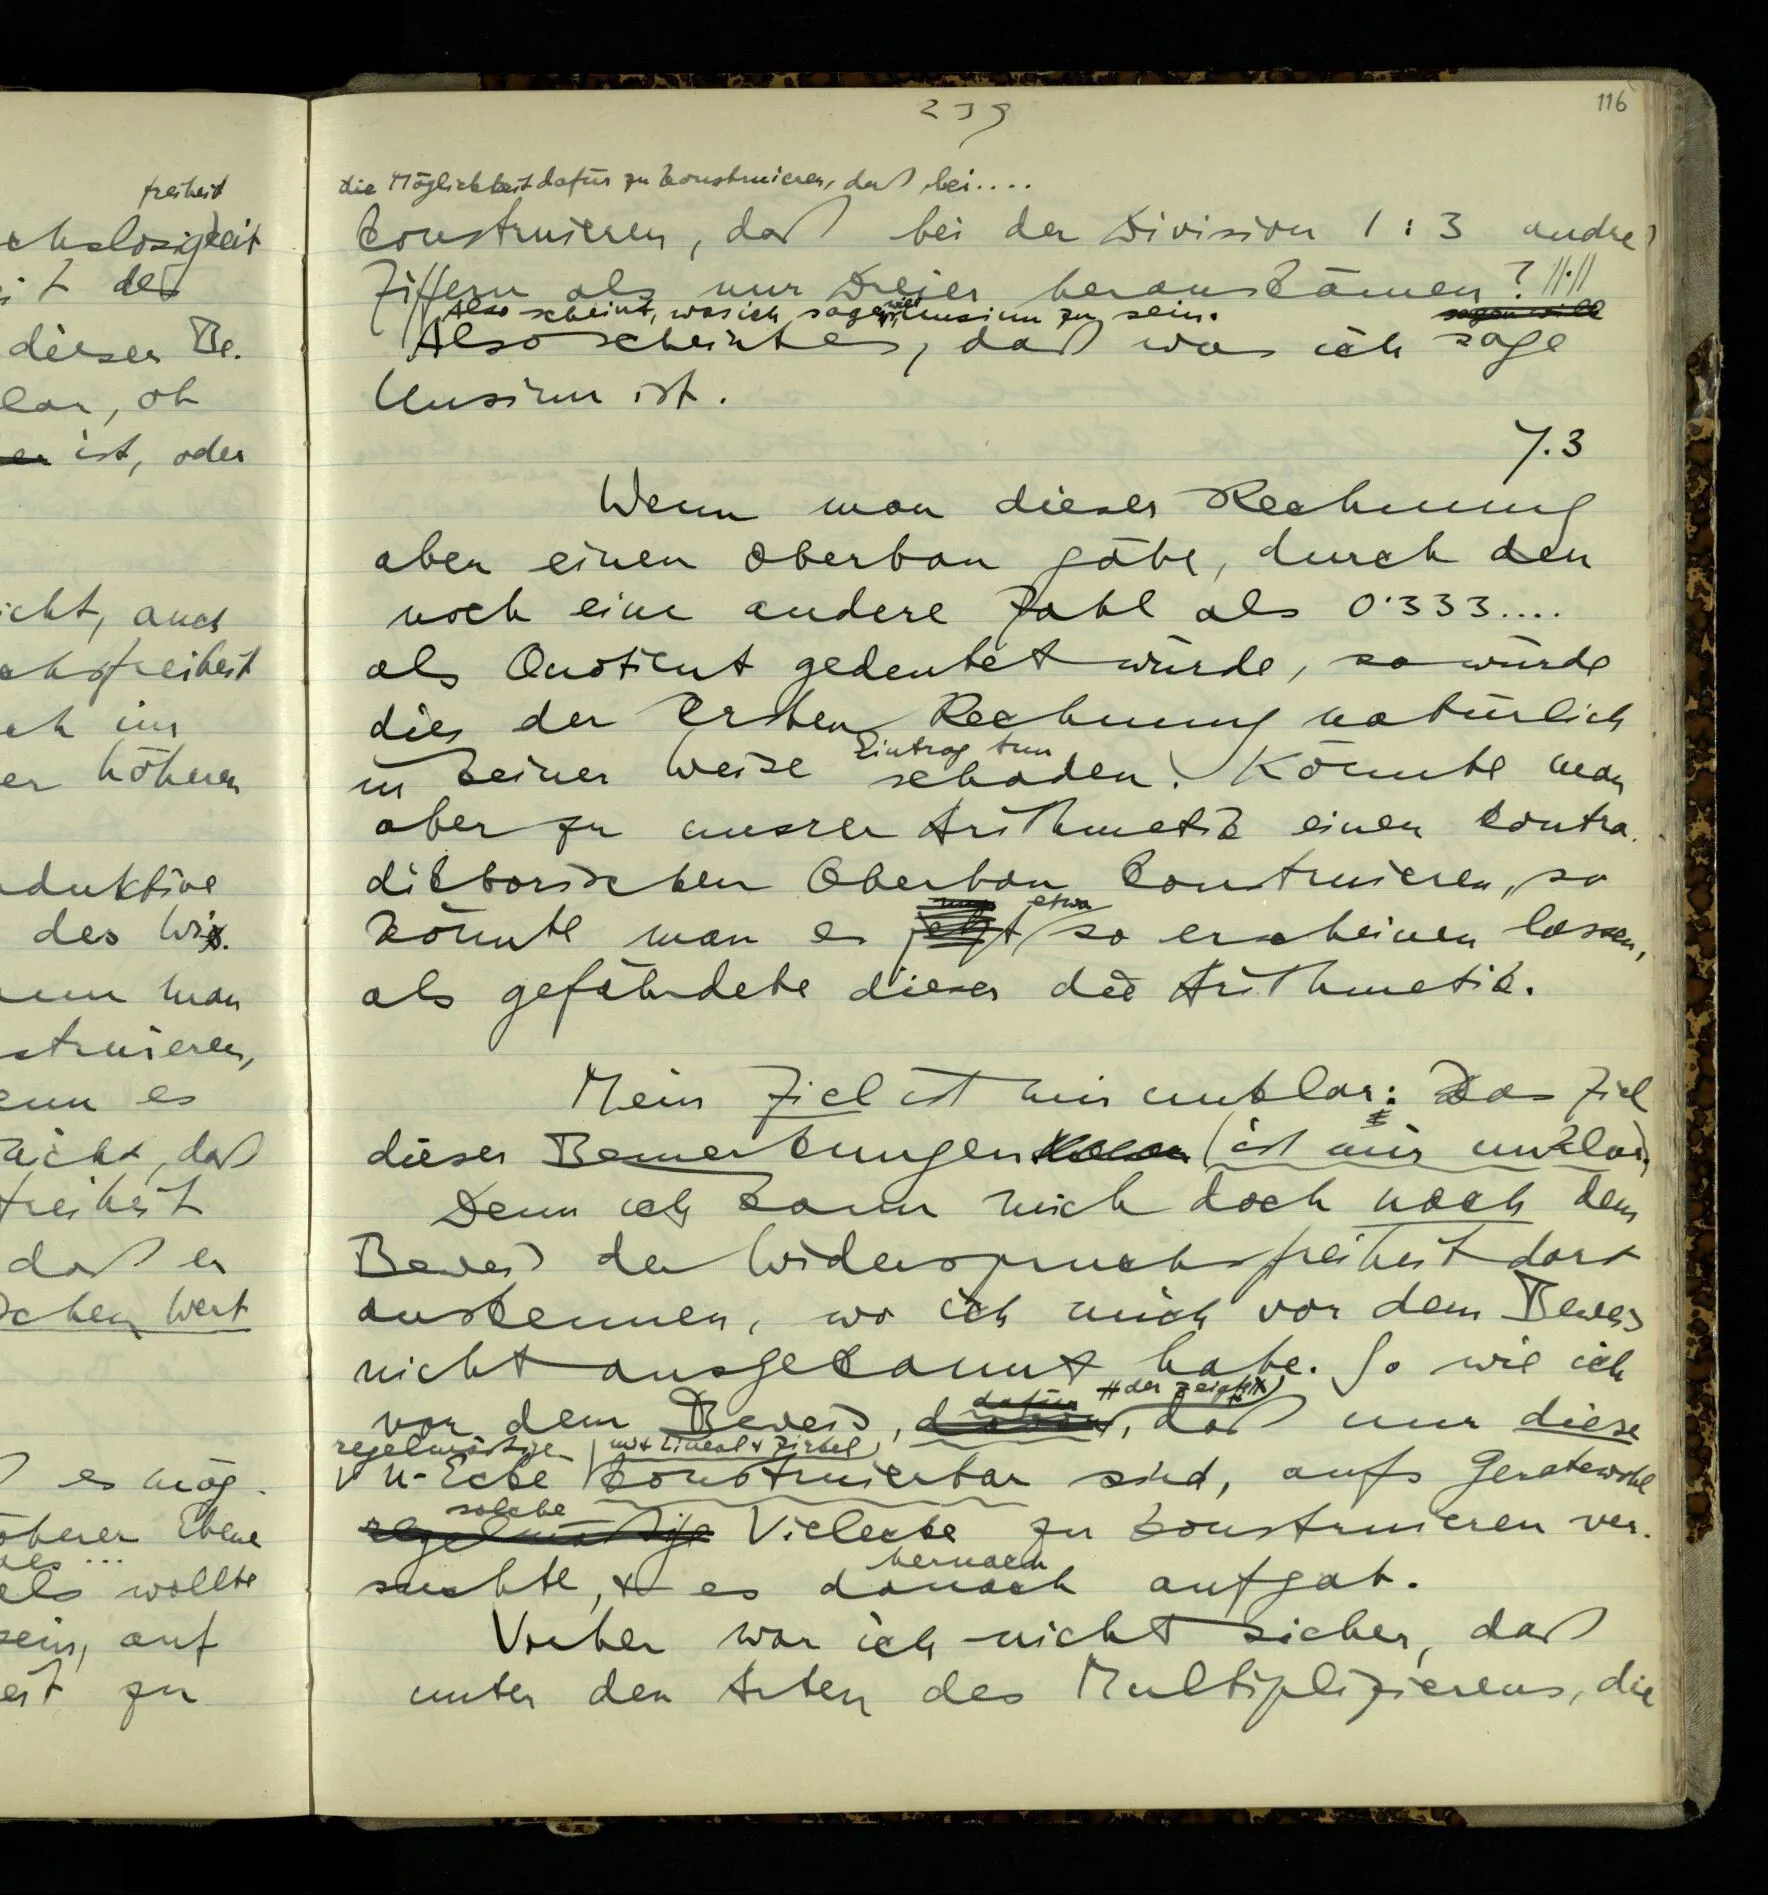 freiheit
chslosigkeit
dieser Be-
ob
ist, oder
icht, auch
chsfreiheit
er höheren
duktive
des Wis-
man
struieren,
enn es
nicht, daß
freiheit
daß er
schen Wert
es mög-
öherer Ebene
als wollte
sein, auf
zu
239
116
die Möglichkeit dafür zu konstruieren, daß bei....
konstruieren, daß bei der Division 1 : 3 andre
Ziffern als nur Dreier herauskämen?
Also scheint, was ich sagen will, Unsinn zu sein. sagen will
Also scheint es, daß was ich sage
Unsinn ist.
7.3
Wenn man dieser Rechnung
aber einen Oberbau gäbe, durch den
noch eine andere Zahl als 0·333....
als Quotient gedeutet würde, so würde
dies der ersten Rechnung natürlich
Eintrag tun
in keiner Weise schaden. Könnte man
aber zu unsrer Arithmetik einen kontra-
diktorischen Oberbau konstruieren, so
nun etwa
könnte man es jetzt so erscheinen lassen,
als gefährdete dieser die Arithmetik.
Mein Ziel ist mir unklar: Das Ziel
dieser Bemerkungen (ist mir unklar)
Denn ich kann mich doch nach dem
Beweis der Widerspruchsfreiheit dort
auskennen, wo ich mich vor dem Beweis
nicht ausgekannt habe. So wie ich
dafür der zeigt
vor dem Beweis, davon, daß nur diese
regelmäßige mit Lineal & Zirkel
n-Ecke konstruierbar sind, aufs Geratewohl
solche
regelmäßige Vielecke zu konstruieren ver-
hernach
suchte, & es danach aufgab.
Vorher war ich nicht sicher, daß
unter den Arten des Multiplizierens, die